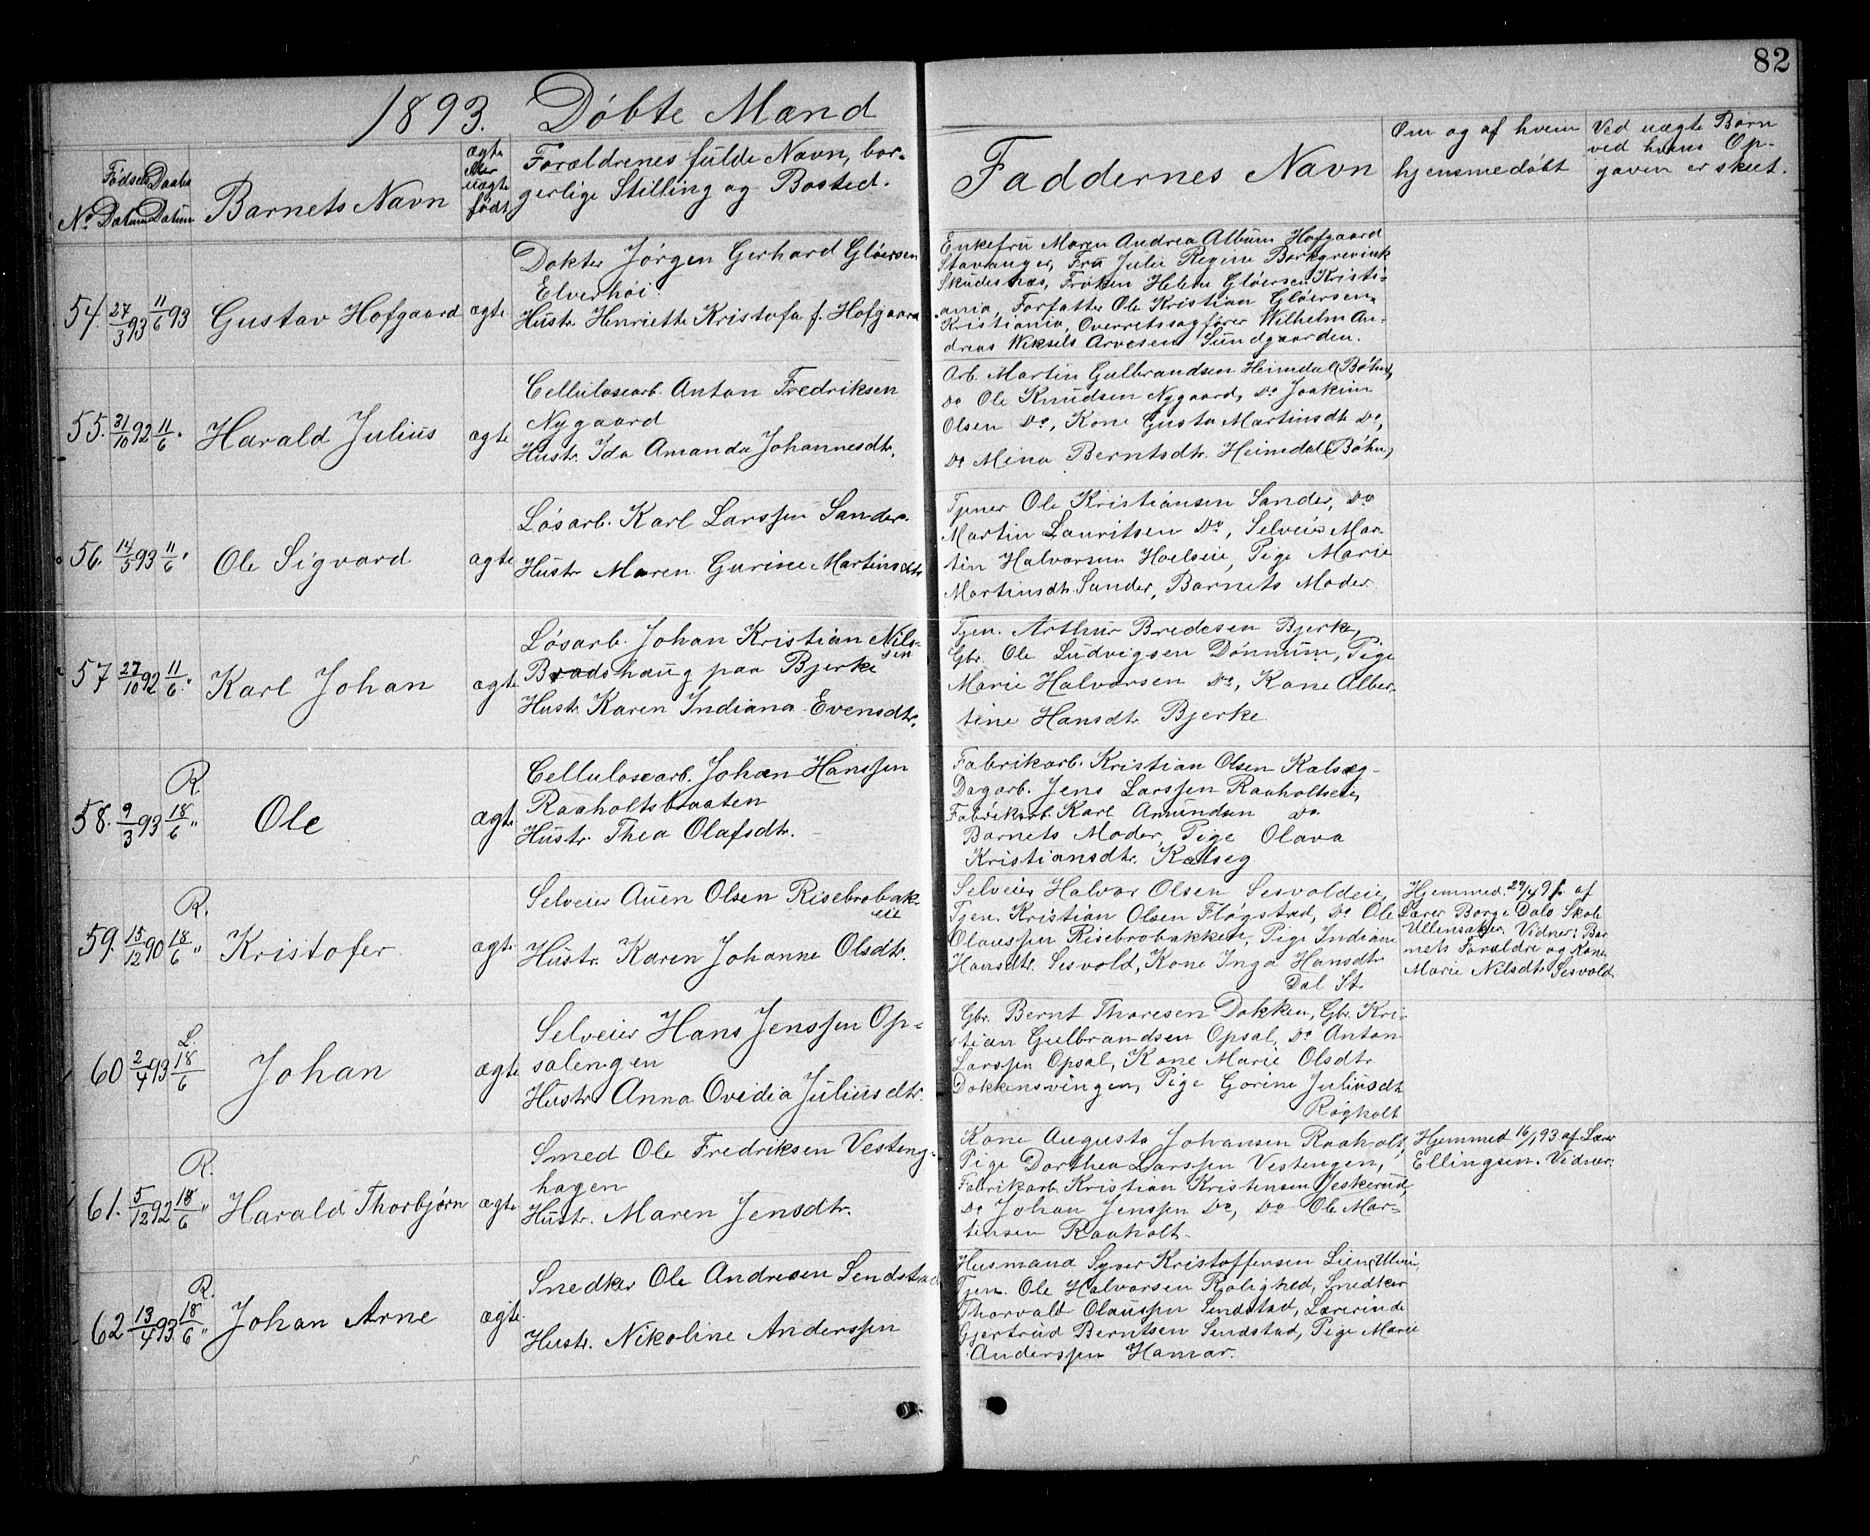 82
1893. Døbte Mænd
No Fødsels Datum Daabs Datum Barnets Navn ægte eller uægte født
Forældrenes fulde Navn, bor-
gerlige Stilling og Bosted.
Faddernes Navn
Om og af hvem
hjemmedøbt
Ved uægte Børn
ved hvems Op-
gaven er skeet.
54. 27/3 93 11/6 93 Gustav Hofgaard ægte
Dokter Jørgen Gerhard Gløersen
Elverhøi
Hustr. Henriette Kristofa f. Hofgaard
Enkefru Maren Andrea Album Hofgaard
Stavanger, Fru Julie Regine Borkgrevink
Skudesnæs, Frøken Helene Gløersen Kristi-
ania, Forfatter Ole Kristian Gløersen
Kristiania, Overretssagfører Wilhelm An-
dreas Weksels Arvesen Sundgaarden.
55. 31/10 92 11/6 " Harald Julius ægte
Cellulosearb. Anton Fredriksen
Nygaard
Hustr. Ida Amanda Johannesdtr.
Arb. Martin Gulbrandsen Heimdal (Bøhn),
Do Ole Knudsen Nygaard, Do Joakim
Olsen Do, Kone Gusta Martinsdtr Do,
Do Mina Berntsdtr. Heimdal (Bøhn)
56. 14/5 93 11/6 " Ole Sigvard ægte
Løsarb. Karl Larssen Sander.
Hustr Maren Gurine Martinsdtr
Tjener Ole Kristiansen Sander, Do
Martin Lauritsen Do, Selveier Mar-
tin Halvorsen Hoelseie, Pige Marie
Martinsdtr Sander, Barnets Moder.
57 27/10 92 11/6 " Karl Johan ægte
Løsarb. Johan Kristian Nils-
sen
Bradshaug paa Bjerke
Hustr Karen Indiana Evensdtr.
Tjen. Arthur Bredesen Bjerke,
Gbr. Ole Ludvigsen Dønnum, Pige
Marie Halvorsen Do, Kone Alber-
tine Hansdtr Bjerke
R.
58. 9/3 93 18/6 " Ole ægte
Cellulosearb. Johan Hanssen
Raaholtsbraaten
Hustr Thea Olafsdtr.
Fabrikarb. Kristian Olsen Kalseg
Dagarb. Jens Larssen Raaholtseie,
Fabrikarb. Karl Amundsen Do
Barnets Moder, Pige Olava
Kristiansdtr. Kalseg
R.
59. 15/12 90 18/6 " Kristofer ægte
Selveier Auen Olsen Risebrobak-
eie
Hustr. Karen Johanne Olsdtr.
Selveier Halvor Olsen Sesvoldeie,
Tjen. Kristian Olsen Fløgstad, Do Ole
Olaussen Risebrobakken, Pige Indiane
Hansdtr. Sesvold, Kone Inga Hansdtr
Dal St.
Hjemmed. 29/4 91. af
Lærer Borge Dals Skole
Ullensaker. Vidner: Bar-
nets Forældre og Kone
Marie Nilsdtr Sesvold
L.
60 2/4 93 18/6 Johan ægte
Selveier Hans Jenssen Op-
salengen
Hustr Anna Ovedia Juliusdtr.
Gbr. Bernt Thoresen Dokken, Gbr. Kri-
stian Gulbrandsen Opsal, Do Anton
Larssen Opsal, Kone Marie Olsdtr
Dokkensvingen, Pige Gorine Juliusdtr
Røgholt
R.
61. 5/12 92 18/6 " Harald Thorbjørn ægte
Smed Ole Fredriksen Vesteng-
hagen
Hustr. Maren Jensdtr.
Kone Augusta Johansen Raaholt,
Pige Dorthea Larssen Vestengen,
Fabrikarb. Kristian Kristensen Jeskerud,
Do Johan Jenssen Do, Do Ole Mar-
tinsen Raaholt
Hjemmed 16/1 93 af Lærer
Ellingsen. Vidner:
R.
62 13/4 93 18/6 " Johan Arne ægte
Snedker Ole Andresen Sendstad
Hustr. Nikoline Anderssen
Husmand Syver Kristoffersen Lien,
Tjen. Ole Halvorsen Rolighed, Snedker
Thorvald Olaussen Sendstad, Lærerinde
Gjertrud Berntsen Sendstad, Pige Marie
Anderssen Hamar.